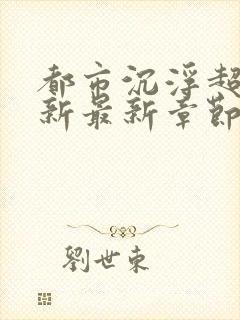 都市沉浮超
新最新章節
劉世東